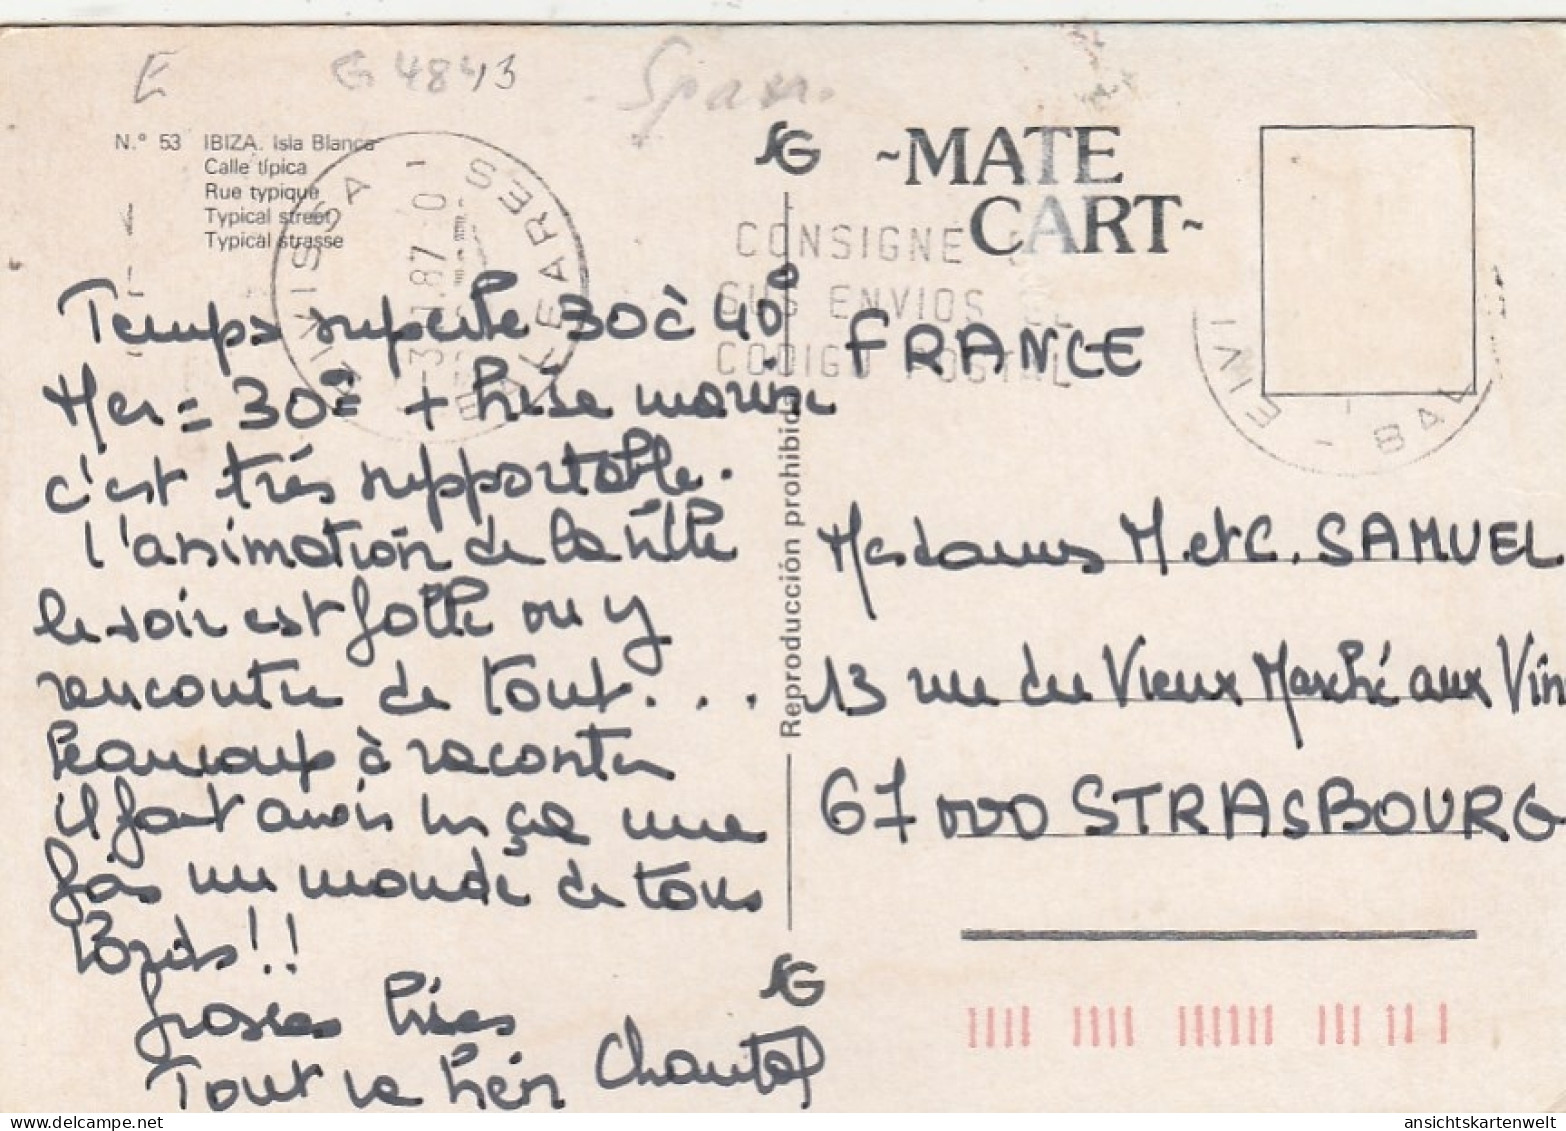 E
G 4843
Spain
N.° 53 IBIZA. Isla Blanca
Calle típica
Rue typique
Typical street
Typical strasse
EIVISSA
BALEARES
MATE
CART
CONSIGNE
SUS ENVIOS EL
CODIGO POSTAL
Temps superbe 30 à 40°
Mer = 30° + brise marine
c'est très supportable.
l'animation de la ville
le soir est folle on y
rencontre de tout...
Beaucoup à raconter
il faut avoir vu ça une
fois un monde de tous
bords!!
Grosses bises
Tout va bien Chantal
Reproducción prohibida
FRANCE
Mesdames M. et C. SAMUEL
13 rue du Vieux Marché aux Vin
67000 STRASBOURG
EIVI
BAL
ansichtskartenwelt